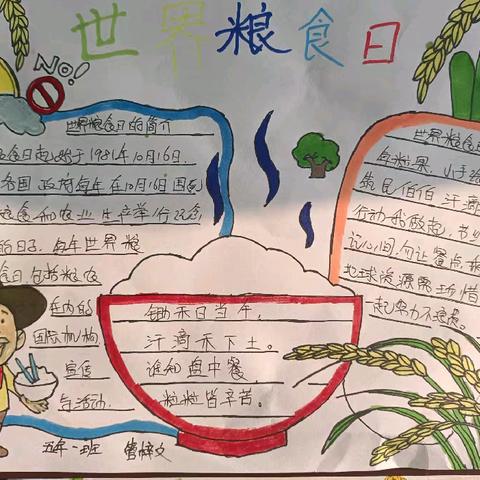 世界粮食日
NO!
世界粮食日的简介
食日起始于1981年10月16日,
各国政府每年在10月16日围
粮食和农业生产举行纪念
的日子。每年世界粮
食日包括粮农
在内的
国际机构
宣传
与活动.
锄禾日当午,
汗滴禾下土。
谁知盘中餐,
粒粒皆辛苦。
世界粮食
农民伯伯汗滴
行动我做起,
记心间,勿让餐点
地球资源需珍惜
一起努力不浪费。
五年一班